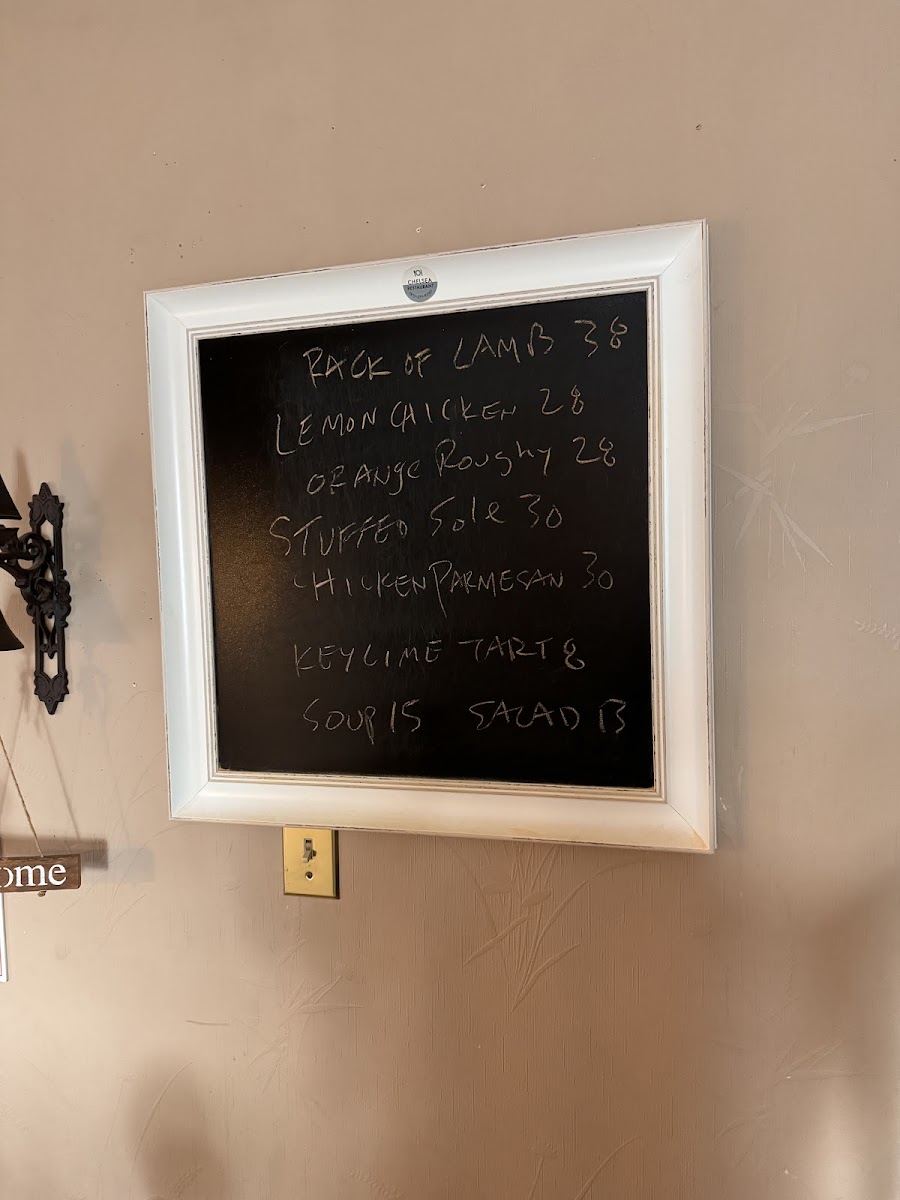 CHELSEA
RESTAURANT
RACK OF LAMB 38
LEMON CHICKEN 28
ORANGE ROUGHY 28
STUFFED Sole 30
CHICKEN PARMESAN 30
KEY LIME TART 8
SOUP 15 SALAD 13
ome